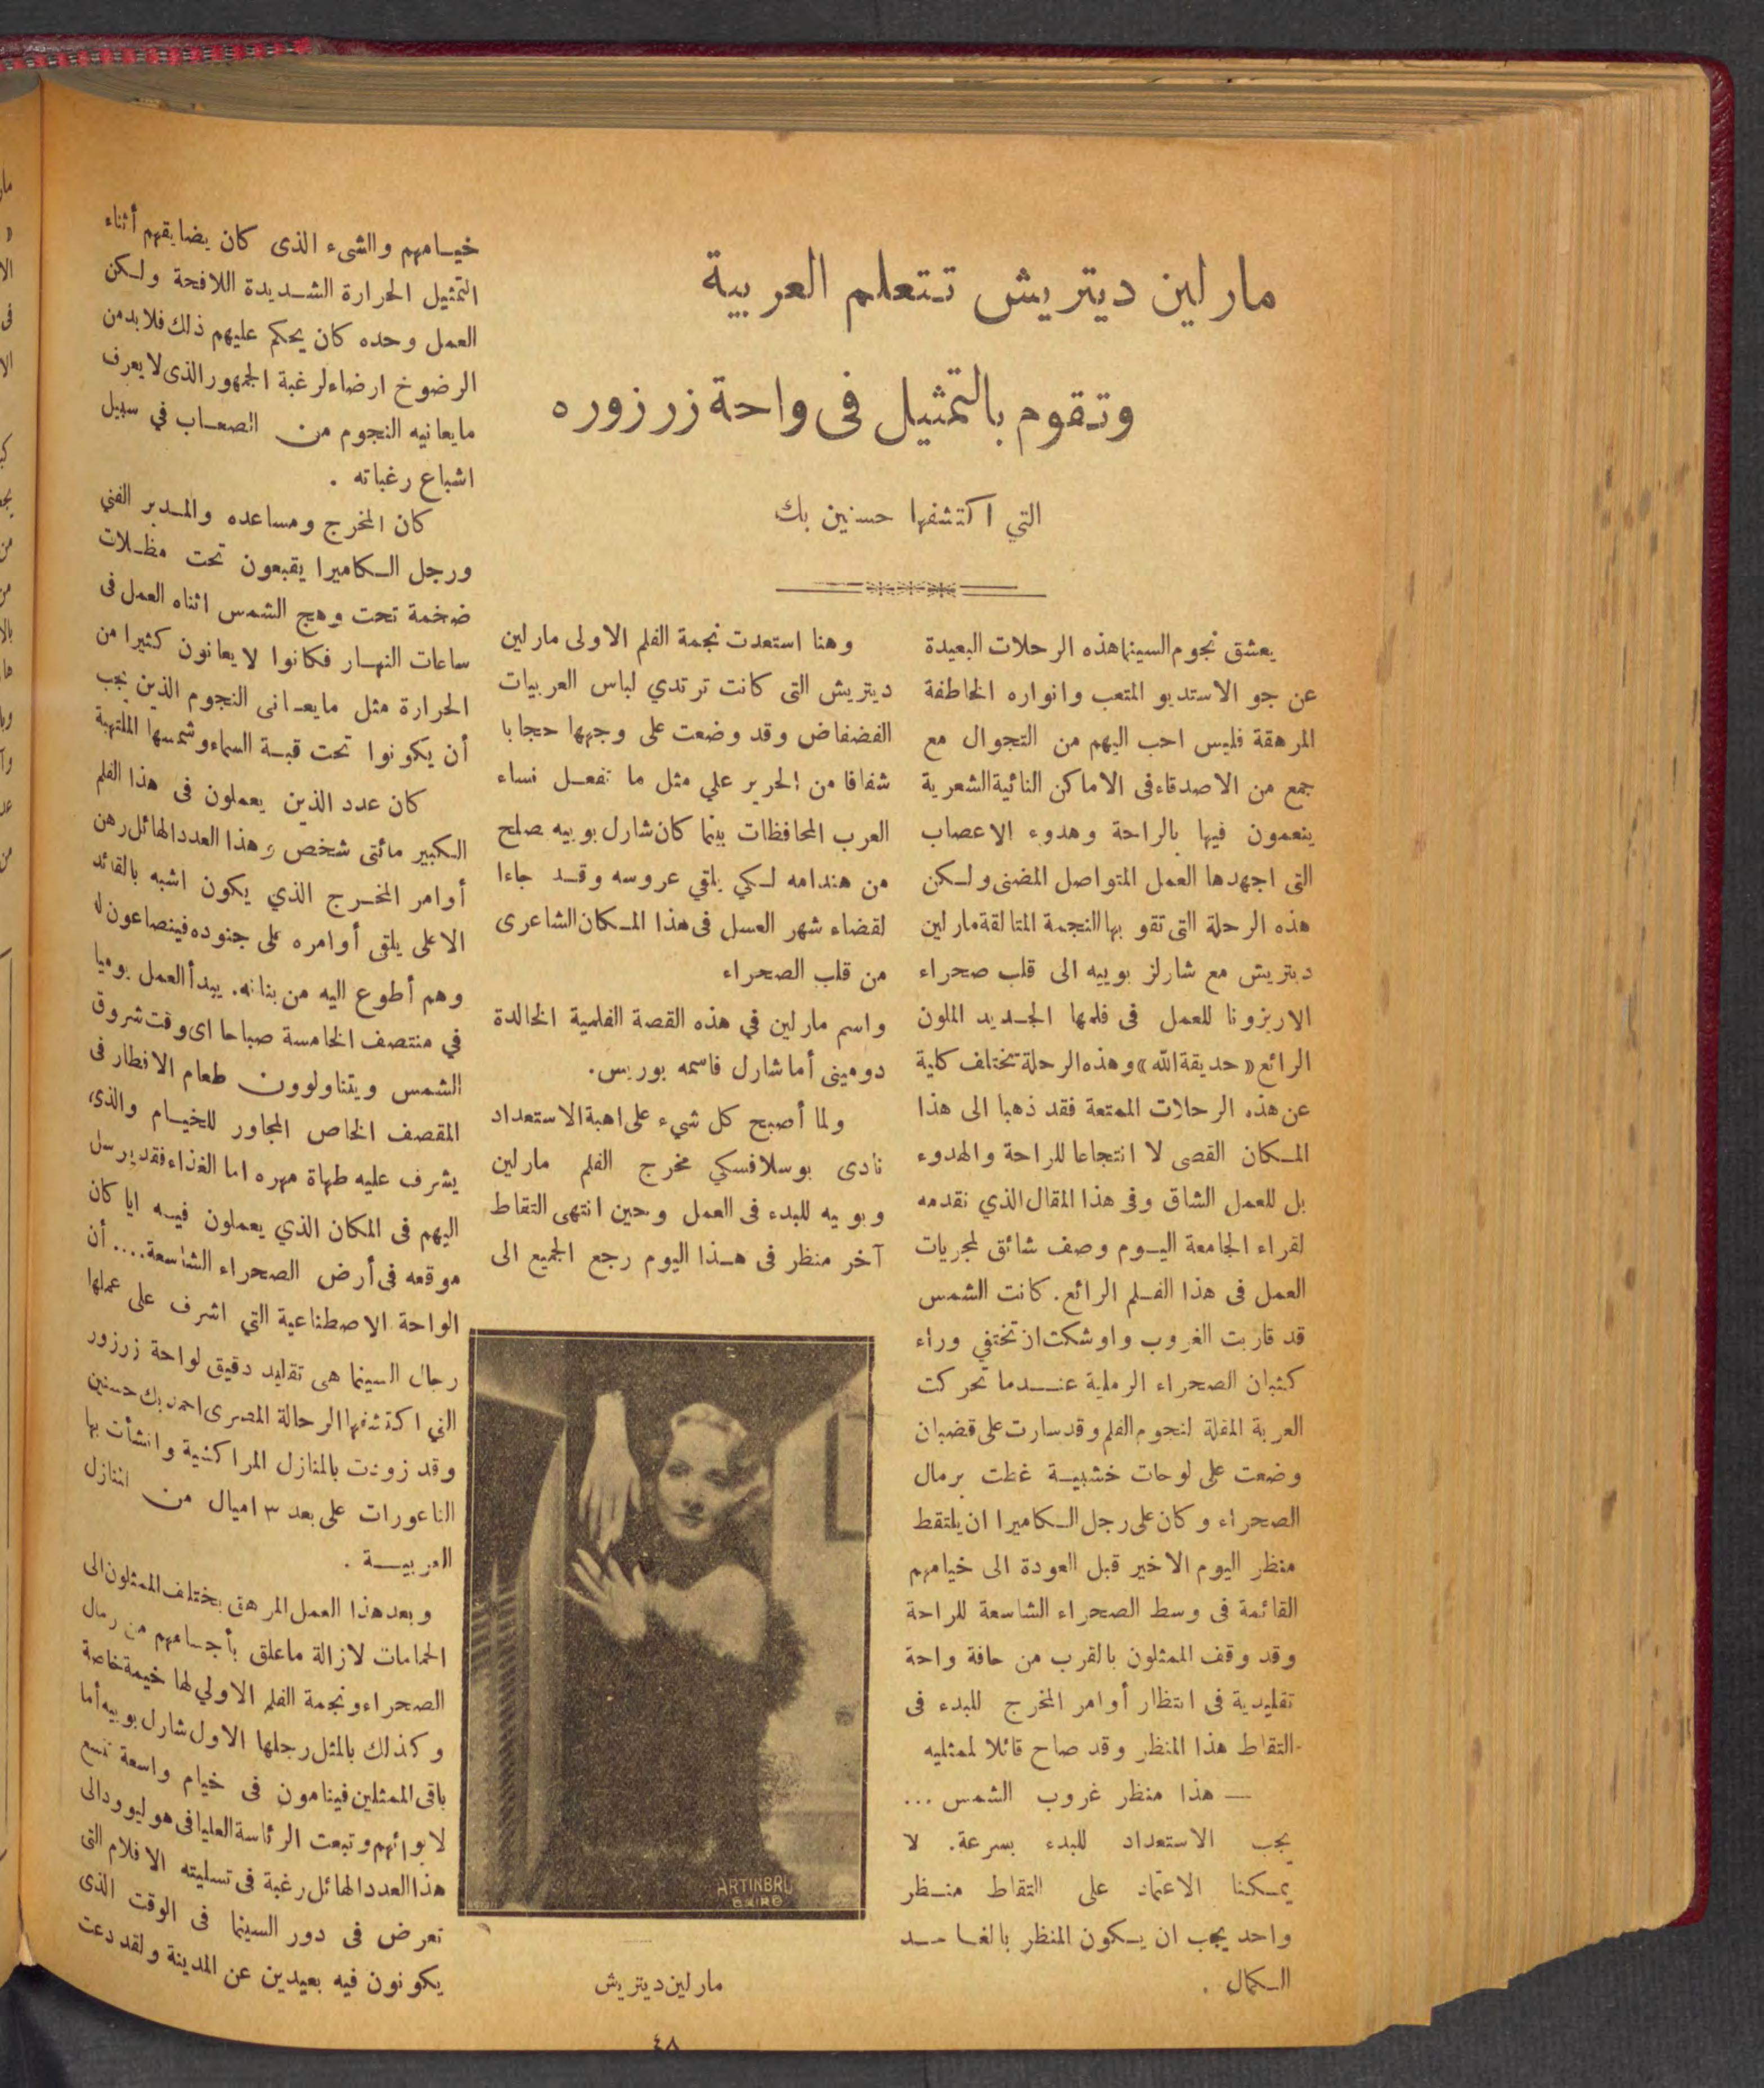 مارلين ديتريش تتعلم العربية
وتقوم بالتمثيل فى واحة زرزوره
التي اكتشفها حسنين بك
يعشق نجوم السينما هذه الرحلات البعيدة
عن جو الاستديو المتعب وانواره الخاطفة
المرهقة فليس احب اليهم من التجوال مع
جمع من الاصدقاء فى الاماكن النائية الشعرية
ينعمون فيها بالراحة وهدوء الاعصاب
التى اجهدها العمل المتواصل المضنى ولكن
هذه الرحلة التى تقو بها النجمة المتالقة مارلين
ديتريش مع شارلز بوييه الى قلب صحراء
الاريزونا للعمل فى فلمها الجديد الملون
الرائع « حديقة الله » وهذه الرحلة تختلف كلية
عن هذه الرحلات الممتعة فقد ذهبا الى هذا
المكان القصى لا انتجاعا للراحة والهدوء
بل للعمل الشاق وفى هذا المقال الذي نقدمه
لقراء الجامعة اليوم وصف شائق لمجريات
العمل فى هذا الفلم الرائع. كانت الشمس
قد قاربت الغروب واوشكت ان تختفي وراء
كثبان الصحراء الرملية عندما تحركت
العربة المقلة لنجوم الفلم وقد سارت على قضبان
وضعت على لوحات خشبية غطت برمال
الصحراء وكان على رجل الكاميرا ان يلتقط
منظر اليوم الاخير قبل العودة الى خيامهم
القائمة فى وسط الصحراء الشاسعة للراحة
وقد وقف الممثلون بالقرب من حافة واحة
تقليدية فى انتظار أوامر المخرج للبدء فى
التقاط هذا المنظر وقد صاح قائلا لممثليه
— هذا منظر غروب الشمس ...
يجب الاستعداد للبدء بسرعة. لا
يمكننا الاعتماد على التقاط منظر
واحد يجب ان يكون المنظر بالغا حد
الكمال .
وهنا استعدت نجمة الفلم الاولى مارلين
ديتريش التى كانت ترتدي لباس العربيات
الفضفاض وقد وضعت على وجهها حجابا
شفافا من الحرير علي مثل ما تفعل نساء
العرب المحافظات بينما كان شارل بوييه يصلح
من هندامه لكي يلقي عروسه وقد جاءا
لقضاء شهر العسل فى هذا المكان الشاعرى
من قلب الصحراء
واسم مارلين في هذه القصة الفلمية الخالدة
دومينى أما شارل فاسمه بوريس.
ولما أصبح كل شيء على اهبة الاستعداد
نادى بوسلافسكي مخرج الفلم مارلين
وبوييه للبدء فى العمل وحين انتهى التقاط
آخر منظر فى هذا اليوم رجع الجميع الى
ARTINBRL
CAIRO
مارلين ديتريش
خيامهم والشىء الذى كان يضايقهم أثناء
التمثيل الحرارة الشديدة اللافحة ولكن
العمل وحده كان يحكم عليهم ذلك فلا بد من
الرضوخ ارضاء لرغبة الجمهور الذى لا يعرف
ما يعانيه النجوم من الصعاب في سبيل
اشباع رغباته .
كان المخرج ومساعده والمدير الفني
ورجل الكاميرا يقبعون تحت مظلات
ضخمة تحت وهج الشمس اثناء العمل فى
ساعات النهار فكانوا لا يعانون كثيرا من
الحرارة مثل ما يعانى النجوم الذين يجب
أن يكونوا تحت قبة السماء وشمسها الملتهبة
كان عدد الذين يعملون فى هذا الفلم
الكبير مائتى شخص وهذا العدد الهائل رهن
أوامر المخرج الذي يكون اشبه بالقائد
الاعلى يلقى أوامره على جنوده فينصاعون له
وهم أطوع اليه من بنانه. يبدأ العمل يوميا
في منتصف الخامسة صباحا اى وقت شروق
الشمس ويتناولوون طعام الافطار فى
المقصف الخاص المجاور للخيام والذى
يشرف عليه طهاة مهره اما الغذاء فقد يرسل
اليهم فى المكان الذي يعملون فيه ايا كان
موقعه فى أرض الصحراء الشاسعة.... أن
الواحة الاصطناعية التي اشرف على عملها
رجال السينما هى تقليد دقيق لواحة زرزور
التي اكتشفها الرحالة المصرى احمد بك حسنين
وقد زودت بالمنازل المراكشية وانشأت بها
الناعورات على بعد ٣ اميال من المنازل
العربية .
وبعد هذا العمل المرهق يختلف الممثلون الى
الحمامات لازالة ما علق بأجسامهم من رمال
الصحراء ونجمة الفلم الاولي لها خيمة خاصة
وكذلك بالمثل رجلها الاول شارل بوييه أما
باقى الممثلين فينامون فى خيام واسعة تسع
لابوائهم وتبعت الرئاسة العليا فى هوليوود الى
هذا العدد الهائل رغبة فى تسليته الافلام التى
تعرض فى دور السينما فى الوقت الذى
يكونون فيه بعيدين عن المدينة ولقد دعت
٤٨